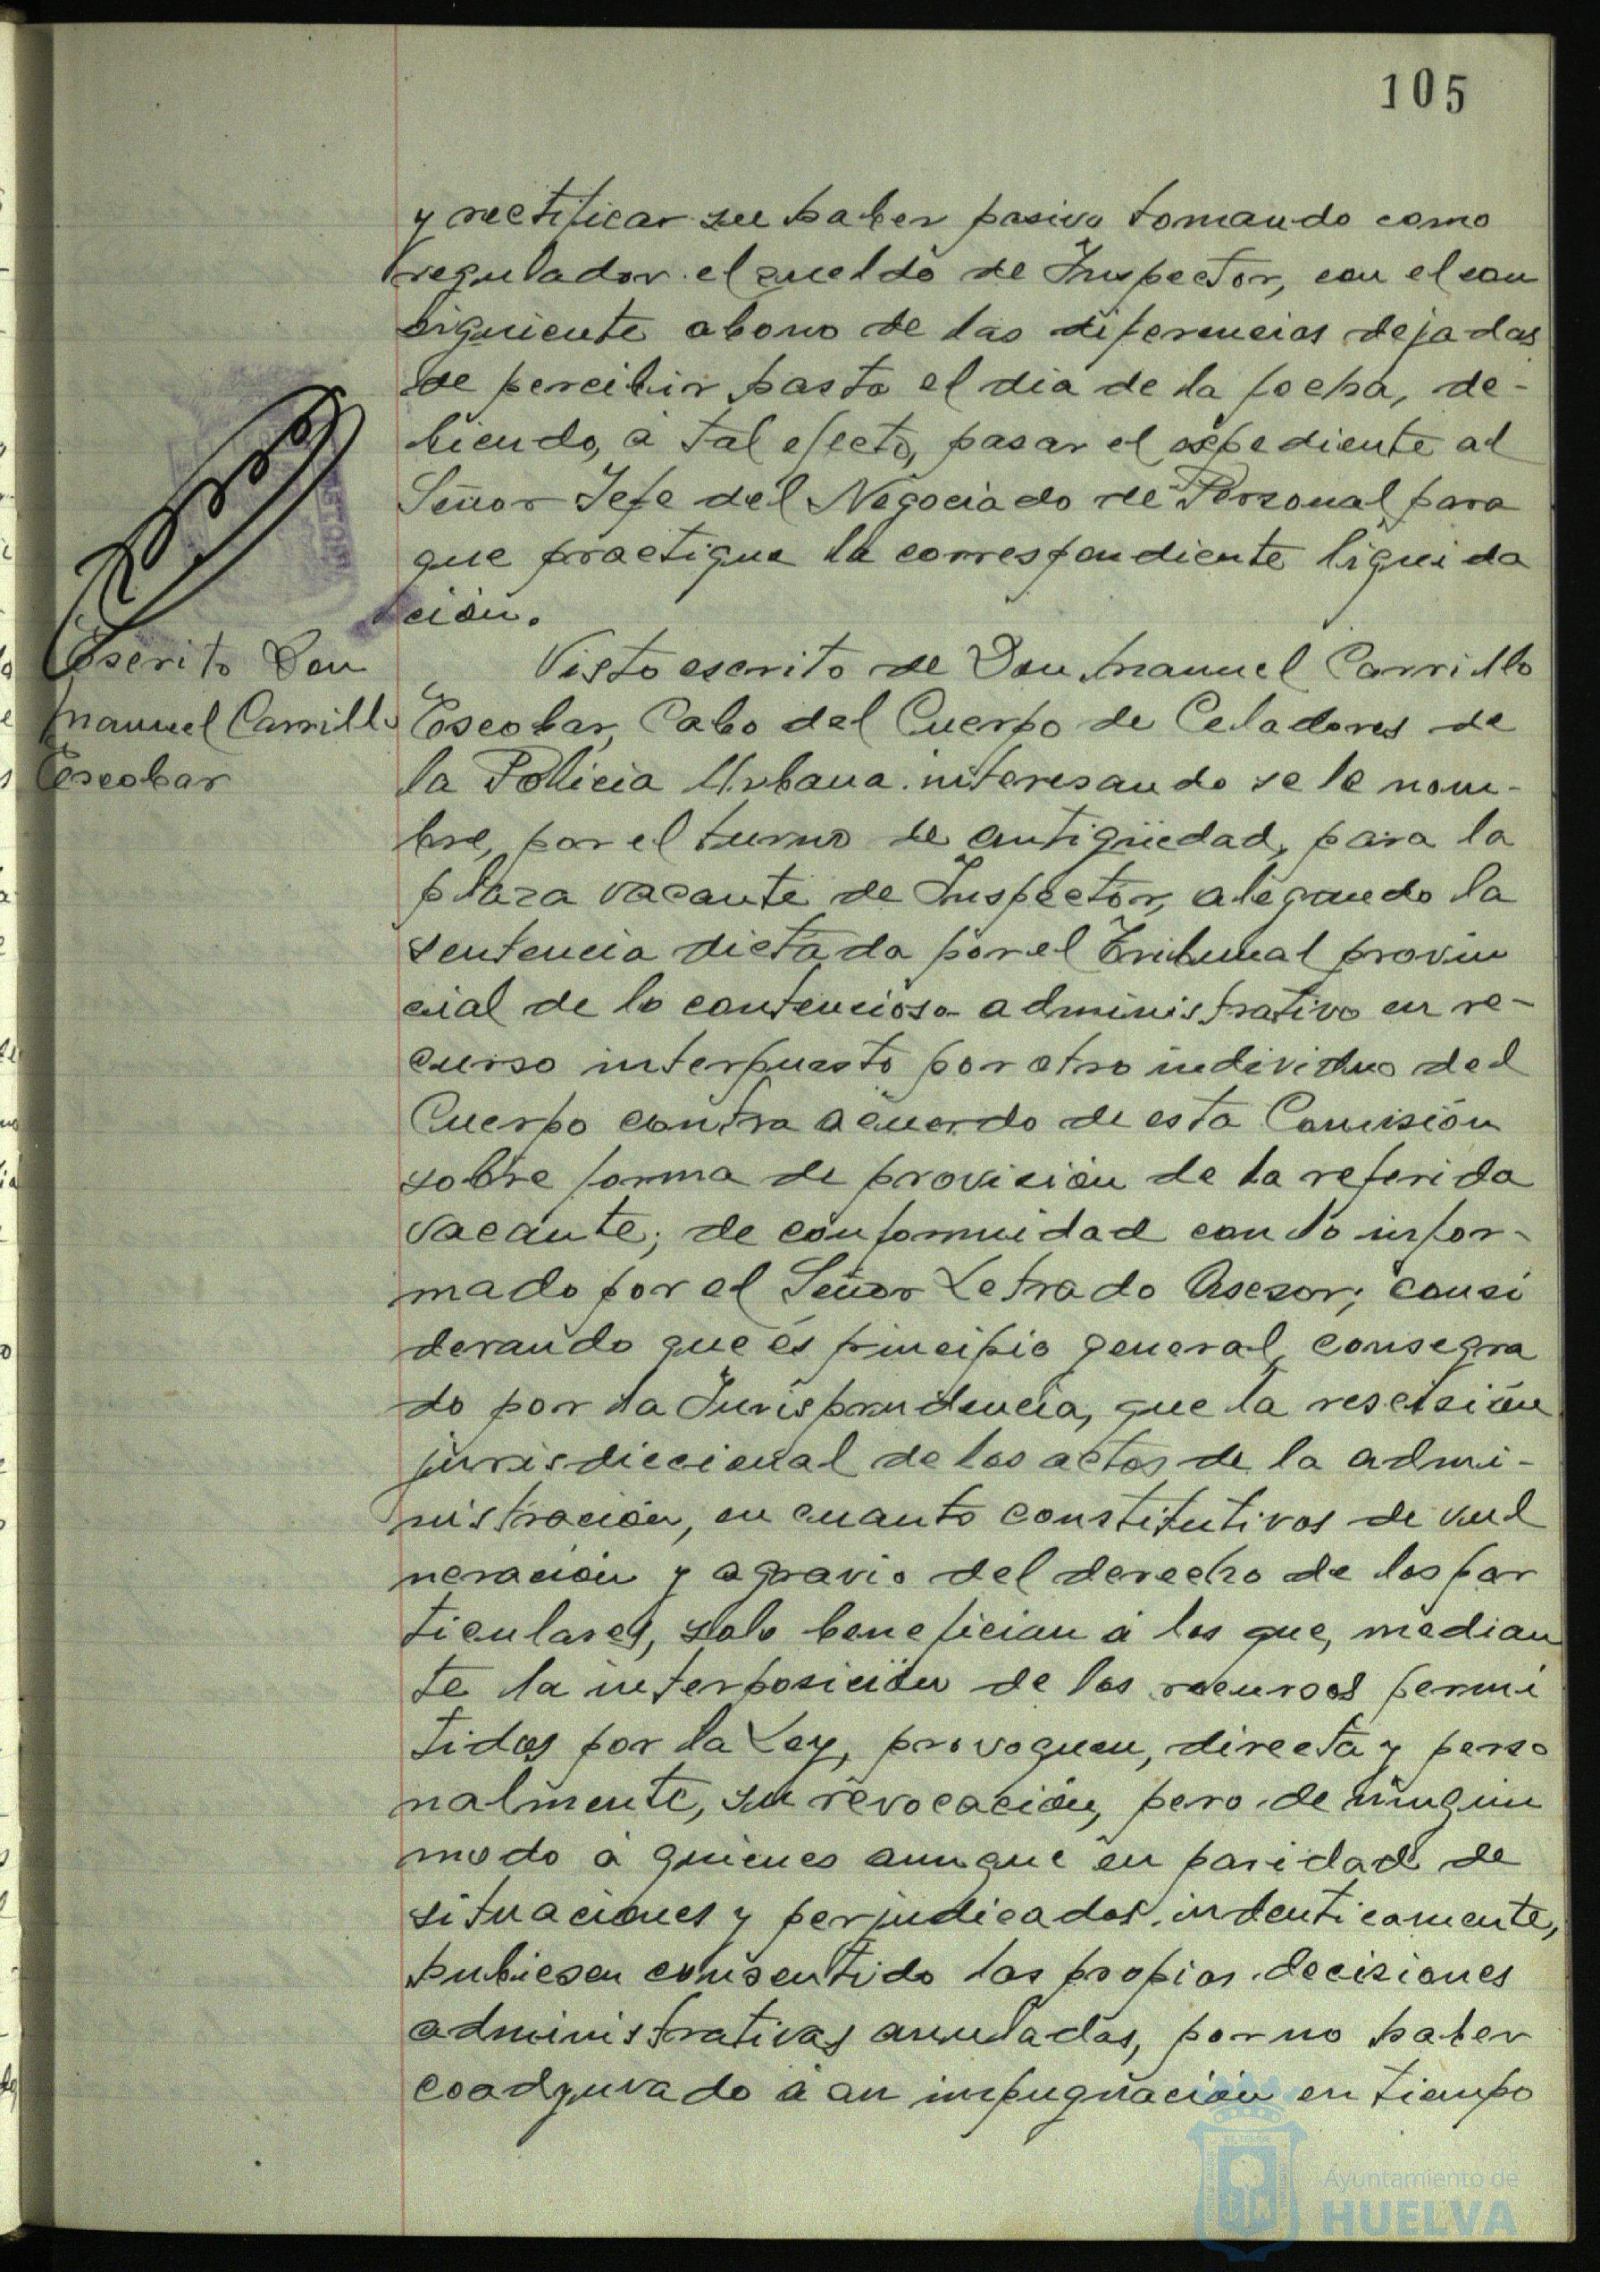 105
y rectificar su haber pasivo tomando como
regulador el sueldo de Inspector, con el con
siguiente abono de las diferencias dejadas
de percibir hasta el dia de la fecha, de-
biendo, á tal efecto, pasar el expediente al
Señor Jefe del Negociado de Personal para
que practique la correspondiente liquida
ción.
Escrito Don
Manuel Carrillo
Escobar
Visto escrito de Don Manuel Carrillo
Escobar, Cabo del Cuerpo de Celadores de
la Policia Urbana interesando se le nom-
bre, por el turno de antigüedad, para la
plaza vacante de Inspector, alegando la
sentencia dictada por el Tribunal provin
cial de lo contencioso administrativo en re-
curso interpuesto por otro individuo del
Cuerpo contra acuerdo de esta Comisión
sobre forma de provisión de la referida
vacante; de conformidad con lo infor-
mado por el Señor Letrado Asesor; consi
derando que és principio general, consegra
do por la Jurisprudencia, que la rescisión
jurisdiccional de los actos de la admi-
nistración, en cuanto constitutivos de vul
neración y agravio del derecho de los par
ticulares, solo benefician á los que, median
te la interposición de los recursos permi
tidos por la Ley, provoquen, directa y perso
nalmente, su revocación, pero de ningún
modo á quienes aunque en paridad de
situaciones y perjudicados indenticamente,
hubiesen consentido las propias decisiones
administrativas anuladas, por no haber
coadyuvado á an impugnación en tiempo
Ayuntamiento de
HUELVA